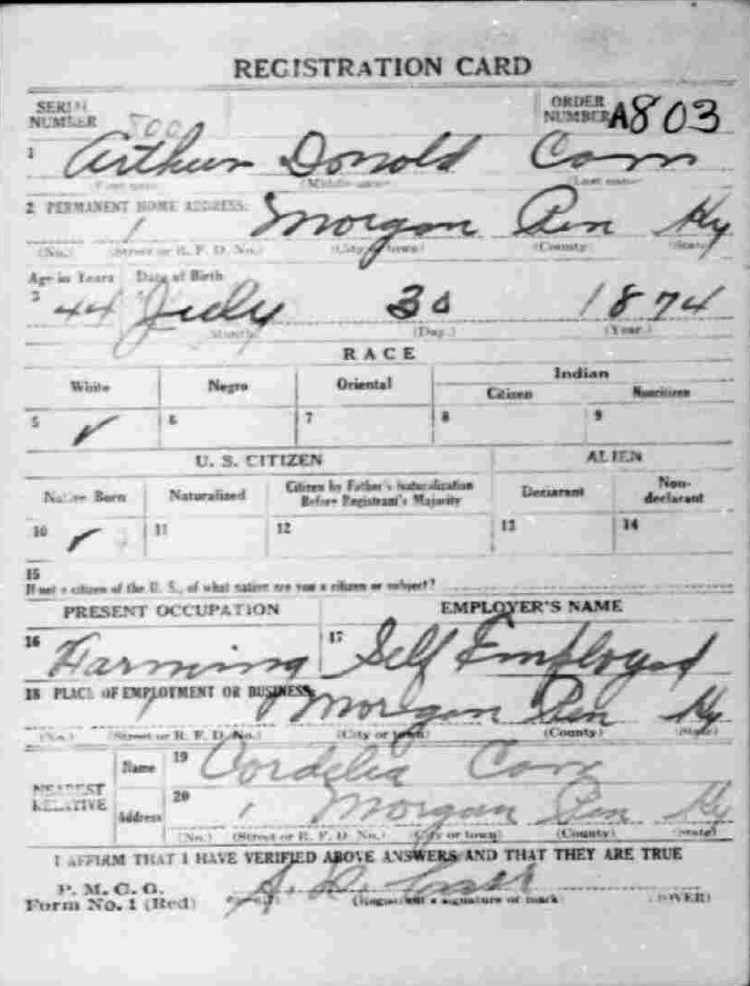 REGISTRATION CARD
SERIAL NUMBER ORDER NUMBER A803
1 Arthur Donald
(First name) (Middle name) (Last name)
2 PERMANENT HOME ADDRESS:
1 Morgan Pen Ky
(No.) (Street or R. F. D. No.) (City or town) (County) (State)
Age in Years Date of Birth
3 44 July 30 1874
(Month.) (Day.) (Year.)
RACE
White Negro Oriental Indian
Citizen Noncitizen
5 ✓ 6 7 8 9
U. S. CITIZEN ALIEN
Native Born Naturalized Citizen by Father's Naturalization Before Registrant's Majority Declarant Non-declarant
10 ✓ 11 12 13 14
15
If not a citizen of the U. S., of what nation are you a citizen or subject?
PRESENT OCCUPATION EMPLOYER'S NAME
16 Farming 17 Self Employed
18 PLACE OF EMPLOYMENT OR BUSINESS:
Morgan Pen Ky
(No.) (Street or R. F. D. No.) (City or town) (County) (State)
NEAREST RELATIVE
Name 19 Cordelia
Address 20 1 Morgan Pen Ky
(No.) (Street or R. F. D. No.) (City or town) (County) (State)
I AFFIRM THAT I HAVE VERIFIED ABOVE ANSWERS AND THAT THEY ARE TRUE
P. M. C. O.
Form No. 1 (Red) A. D. (Registrant's signature or mark) (OVER)